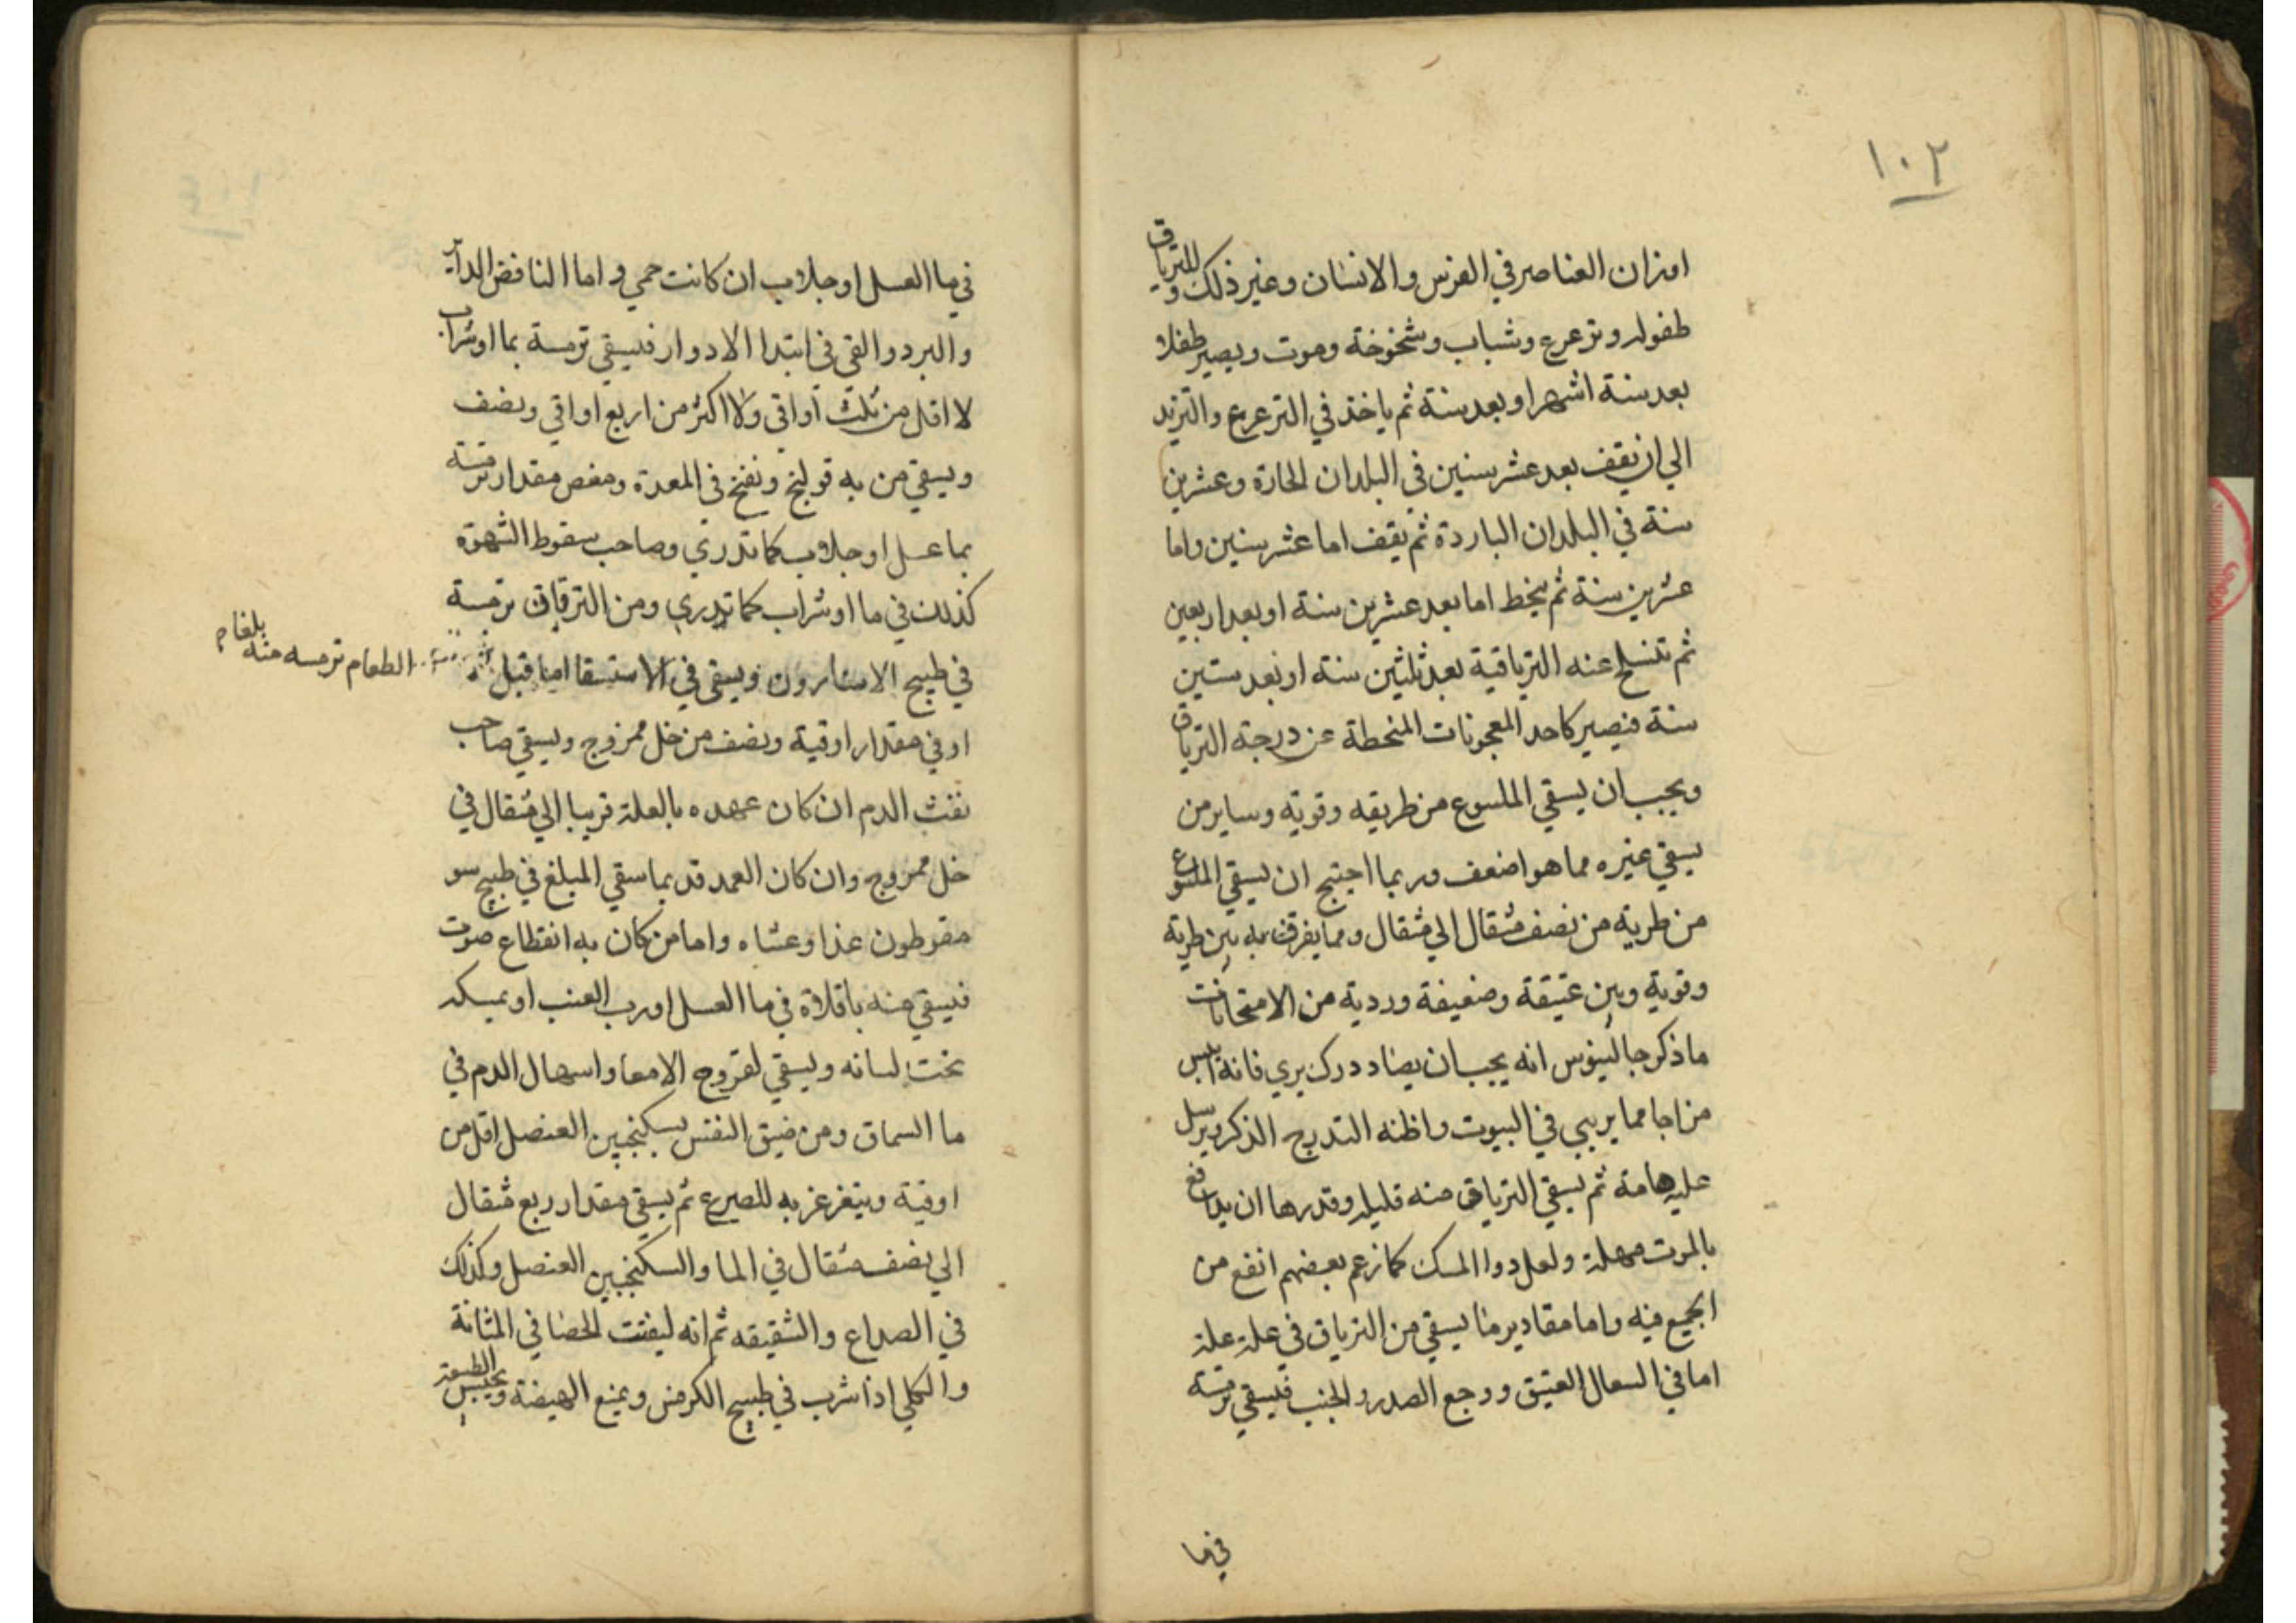 ١٠٢
اوزان العناصر في الفرس والانسان وغير ذلك وللترياق
طفولة وترعرع وشباب وشخوخة وموت ويصير طفلا
بعد ستة اشهر او بعد سنة ثم ياخذ في الترعرع والتزيد
الي ان يقف بعد عشر سنين في البلدان الحارة وعشرين
سنة في البلدان الباردة ثم يقف اما عشر سنين واما
عشرين سنة ثم ينحط اما بعد عشرين سنة او بعد اربعين
ثم تنسلخ عنه الترياقية بعد ثلثين سنة او بعد ستين
سنة فيصير كاحد المعجونات المنحطة عن درجة الترياق
ويجب ان يسقي الملسوع من طريقه وقويه وساير من
يسقي غيره مما هو اضعف وربما احتيج ان يسقي الملسوع
من طريه من نصف مثقال الي مثقال ومما يفرق به بين طرية
وقوية وبين عتيقة وضعيفة وردية من الامتحانات
ما ذكر جالينوس انه يجب ان يصاد درك بري فانه ايبس
مزاجا مما يربي في البيوت واظنه التدرج الذكر ويرسل
عليه هامة ثم يسقي الترياق منه قليله وقدرها ان يدافع
بالموت مهلة ولعل دوا المسك كما زعم بعضهم انفع من
الجميع فيه واما مقادير ما يسقي من الترياق في علة علة
اما في السعال العتيق ووجع الصدر والجنب فيسقي ترمسة
في ما
في ما العسل او جلاب ان كانت حمي واما النافض الداير
والبرد والقي في ابتدا الادوار فيسقي ترمسة بما او شراب
لا اقل من ثلث أواقي ولا اكثر من اربع اواقي ونصف
ويسقي من به قولنج ونفخ في المعدة ومغص مقدار ترمسة
بما عسل او جلاب كما تدري وصاحب سقوط الشهوة
كذلك في ما او شراب كما تدري ومن الترقاق ترمسة
في طبيح الاسارون ويسقي في الاستسقا اما قبل
الطعام ترمسه منه بلغام
او في مقدار اوقية ونصف من خل ممزوج ويسقي صاحب
نفث الدم ان كان عهده بالعلة قريبا الي مثقال في
خل ممزوج وان كان العهد قديما سقي المبلغ في طبيح سو
مقوطون غذا وعشاه واما من كان به انقطاع صوت
فيسقي منه باقلاة في ما العسل او رب العنب او يمسكه
تحت لسانه ويسقي لقروح الامعا واسهال الدم في
ما السماق ومن ضيق النفس بسكنجبين العنصل اقل من
اوقية ويتغرغر به للصرع ثم يسقي مقدار ربع مثقال
الي نصف مثقال في الما والسكنجبين العنصل وكذلك
في الصداع والشقيقه ثم انه ليفتت الحصا في المثانة
والكلي اذا شرب في طبيح الكرفس ويمنع الهيضة ويحبس الطبيعة